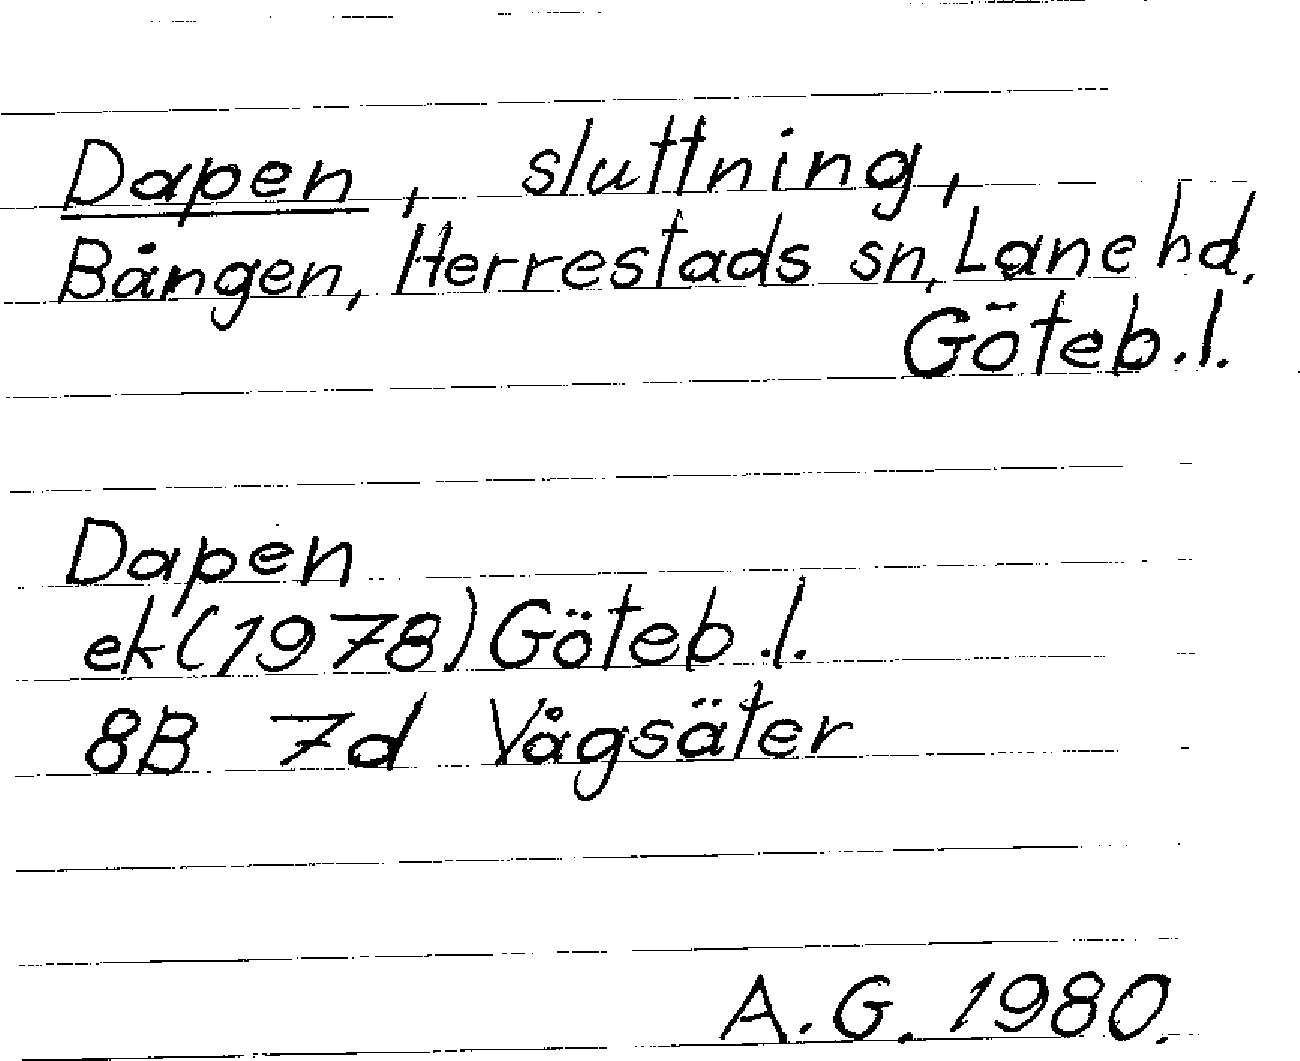 Dapen, sluttning,
Bången, Herrestads sn, Lane hd.
Göteb.l.
Dapen
ek (1978) Göteb.l.
8B 7d Vågsäter
A.G. 1980.